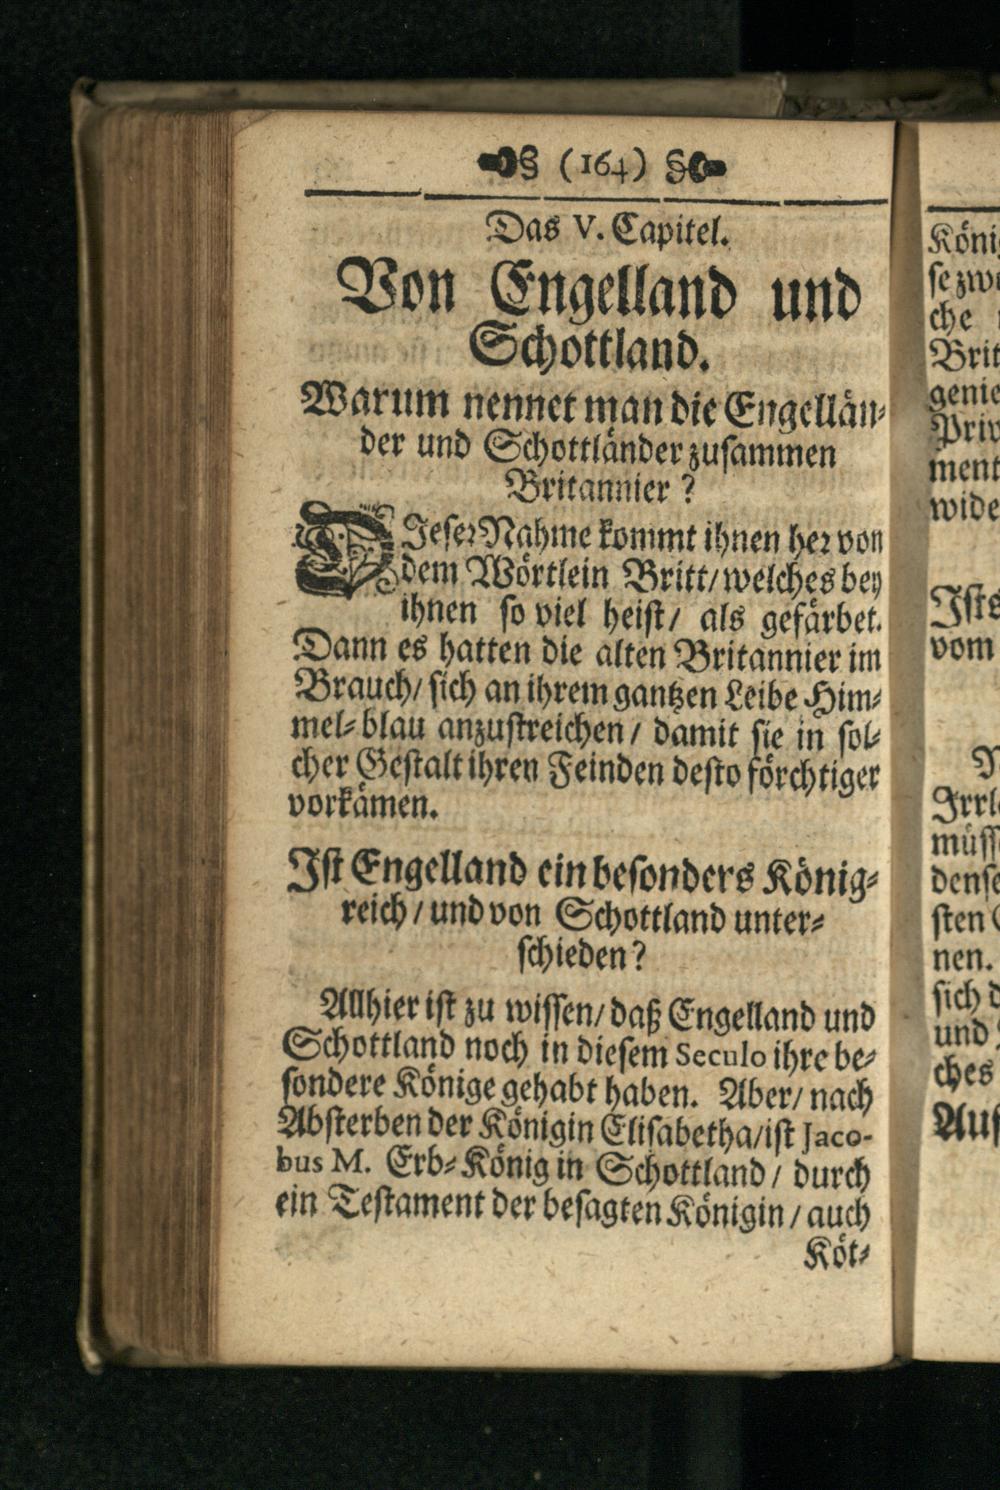 (164)
Das V. Capitel.
Von Engelland und
Schottland.
Warum nennet man die Engellän-
der und Schottländer zusammen
Britannier?
DIeser Nahme kommt ihnen her von
dem Wörtlein Britt/ welches bey
ihnen so viel heist/ als gefärbet.
Dann es hatten die alten Britannier im
Brauch/ sich an ihrem gantzen Leibe Him-
mel-blau anzustreichen/ damit sie in sol-
cher Gestalt ihren Feinden desto förchtiger
vorkämen.
Ist Engelland ein besonders König-
reich/ und von Schottland unter-
schieden?
Allhier ist zu wissen/ daß Engelland und
Schottland noch in diesem Seculo ihre be-
sondere Könige gehabt haben. Aber/ nach
Absterben der Königin Elisabetha/ ist Jaco-
bus M. Erb-König in Schottland/ durch
ein Testament der besagten Königin/ auch
Köt-
Köni
se zwe
che
Brit
genie
Priv
ment
wide
Ists
vom
Irrl
müss
dense
sten
nen.
sich d
und
ches
Auf